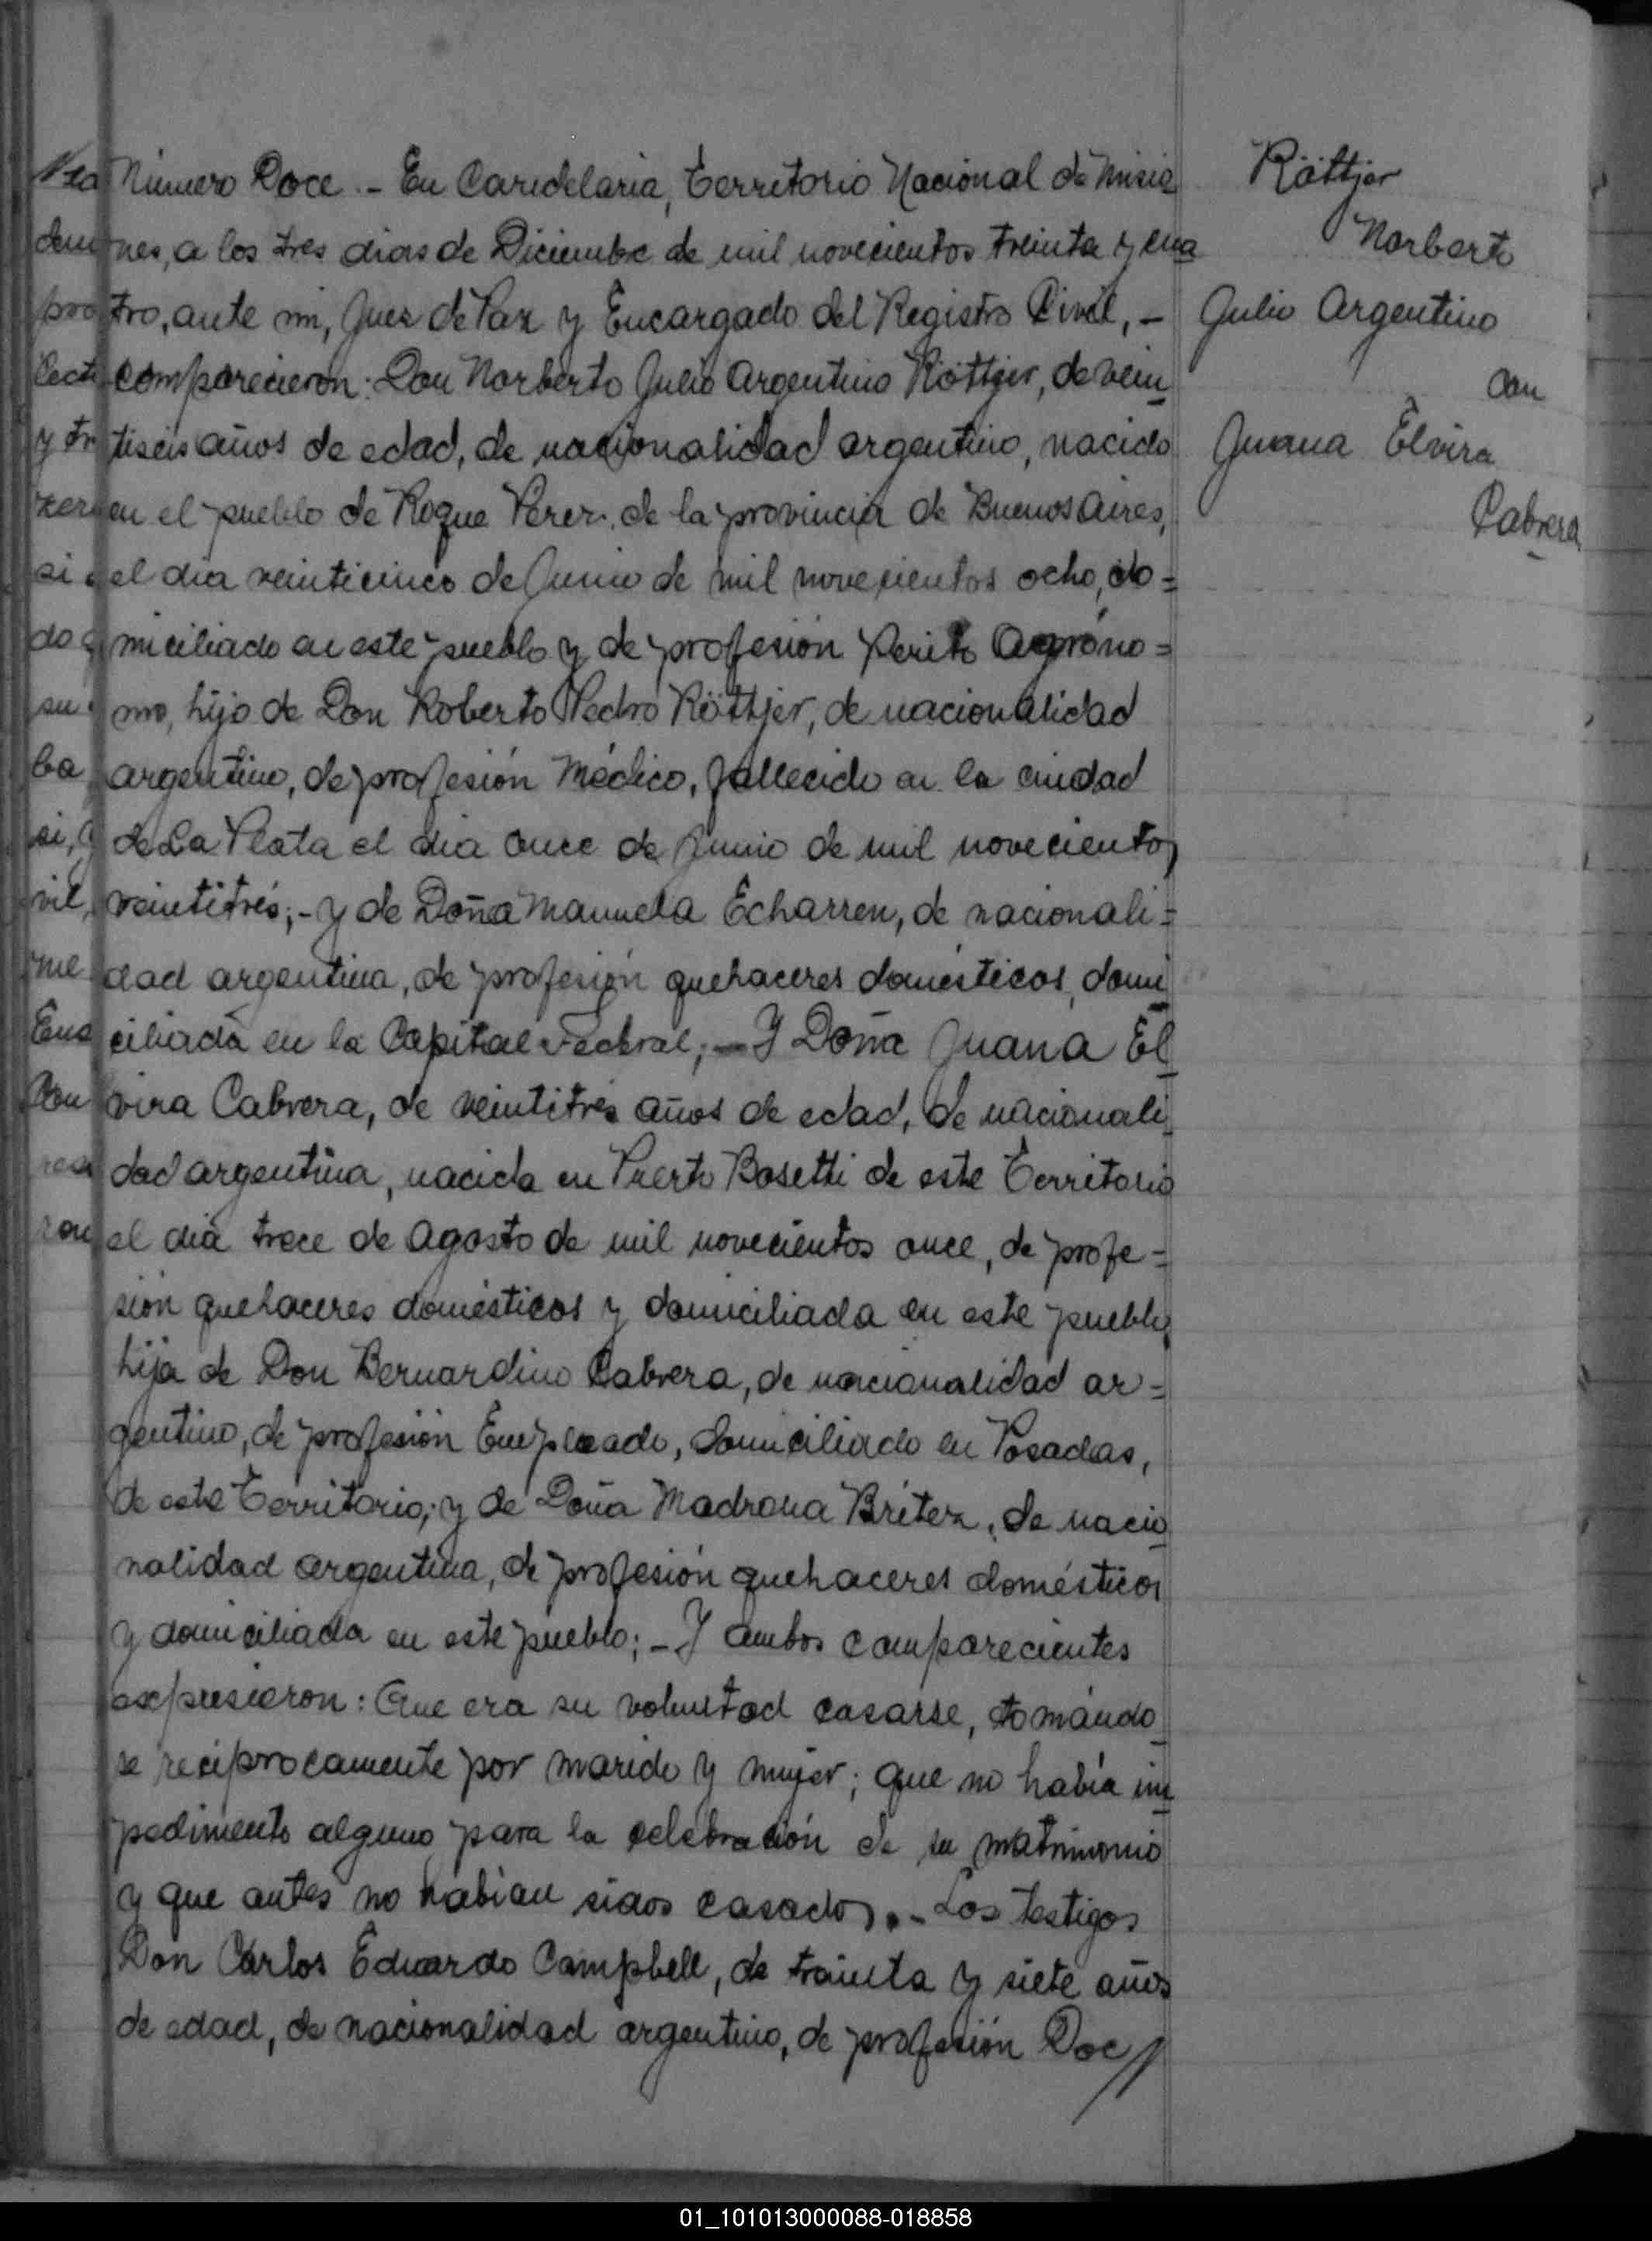 Número Doce.- En Candelaria, Territorio Nacional de Misio
nes, a los tres dias de Diciembre de mil novecientos treinta y cua
tro, ante mi, Juez de Paz y Encargado del Registro Civil, -
comparecieron: Don Norberto Julio Argentino Röttjer, de vein
tiseis años de edad, de nacionalidad argentino, nacido
en el pueblo de Roque Perez, de la provincia de Buenos Aires,
el dia veinticinco de Junio de mil novecientos ocho, do=
miciliado en este pueblo y de profesión Perito Agróno=
mo, hijo de Don Roberto Pedro Röttjer, de nacionalidad
argentino, de profesión Médico, fallecido en la ciudad
de La Plata el dia once de Junio de mil novecientos
veintitrés;- y de Doña Manuela Echarren, de nacionali=
dad argentina, de profesión quehaceres domésticos, domi
ciliada en la Capital Federal; - Y Doña Juana El
vira Cabrera, de veintitrés años de edad, de nacionali
dad argentina, nacida en Puerto Bosetti de este Territorio
el dia trece de Agosto de mil novecientos once, de profe=
sión quehaceres domésticos y domiciliada en este pueblo,
hija de Don Bernardino Cabrera, de nacionalidad ar=
gentino, de profesión Empleado, domiciliado en Posadas,
de este Territorio; y de Doña Madrona Britez, de nacio
nalidad argentina, de profesión quehaceres domésticos
y domiciliada en este pueblo; - Y ambos comparecientes
expusieron: Que era su voluntad casarse, tomándo
se reciprocamente por marido y mujer; que no había im
pedimento alguno para la celebración de su matrimonio
y que antes no habian sidos casados.- Los testigos
Don Carlos Eduardo Campbell, de treinta y siete años
de edad, de nacionalidad argentino, de profesión Doc//
Röttjer
Norberto
Julio Argentino
con
Juana Elvira
Cabrera
01_101013000088-018858